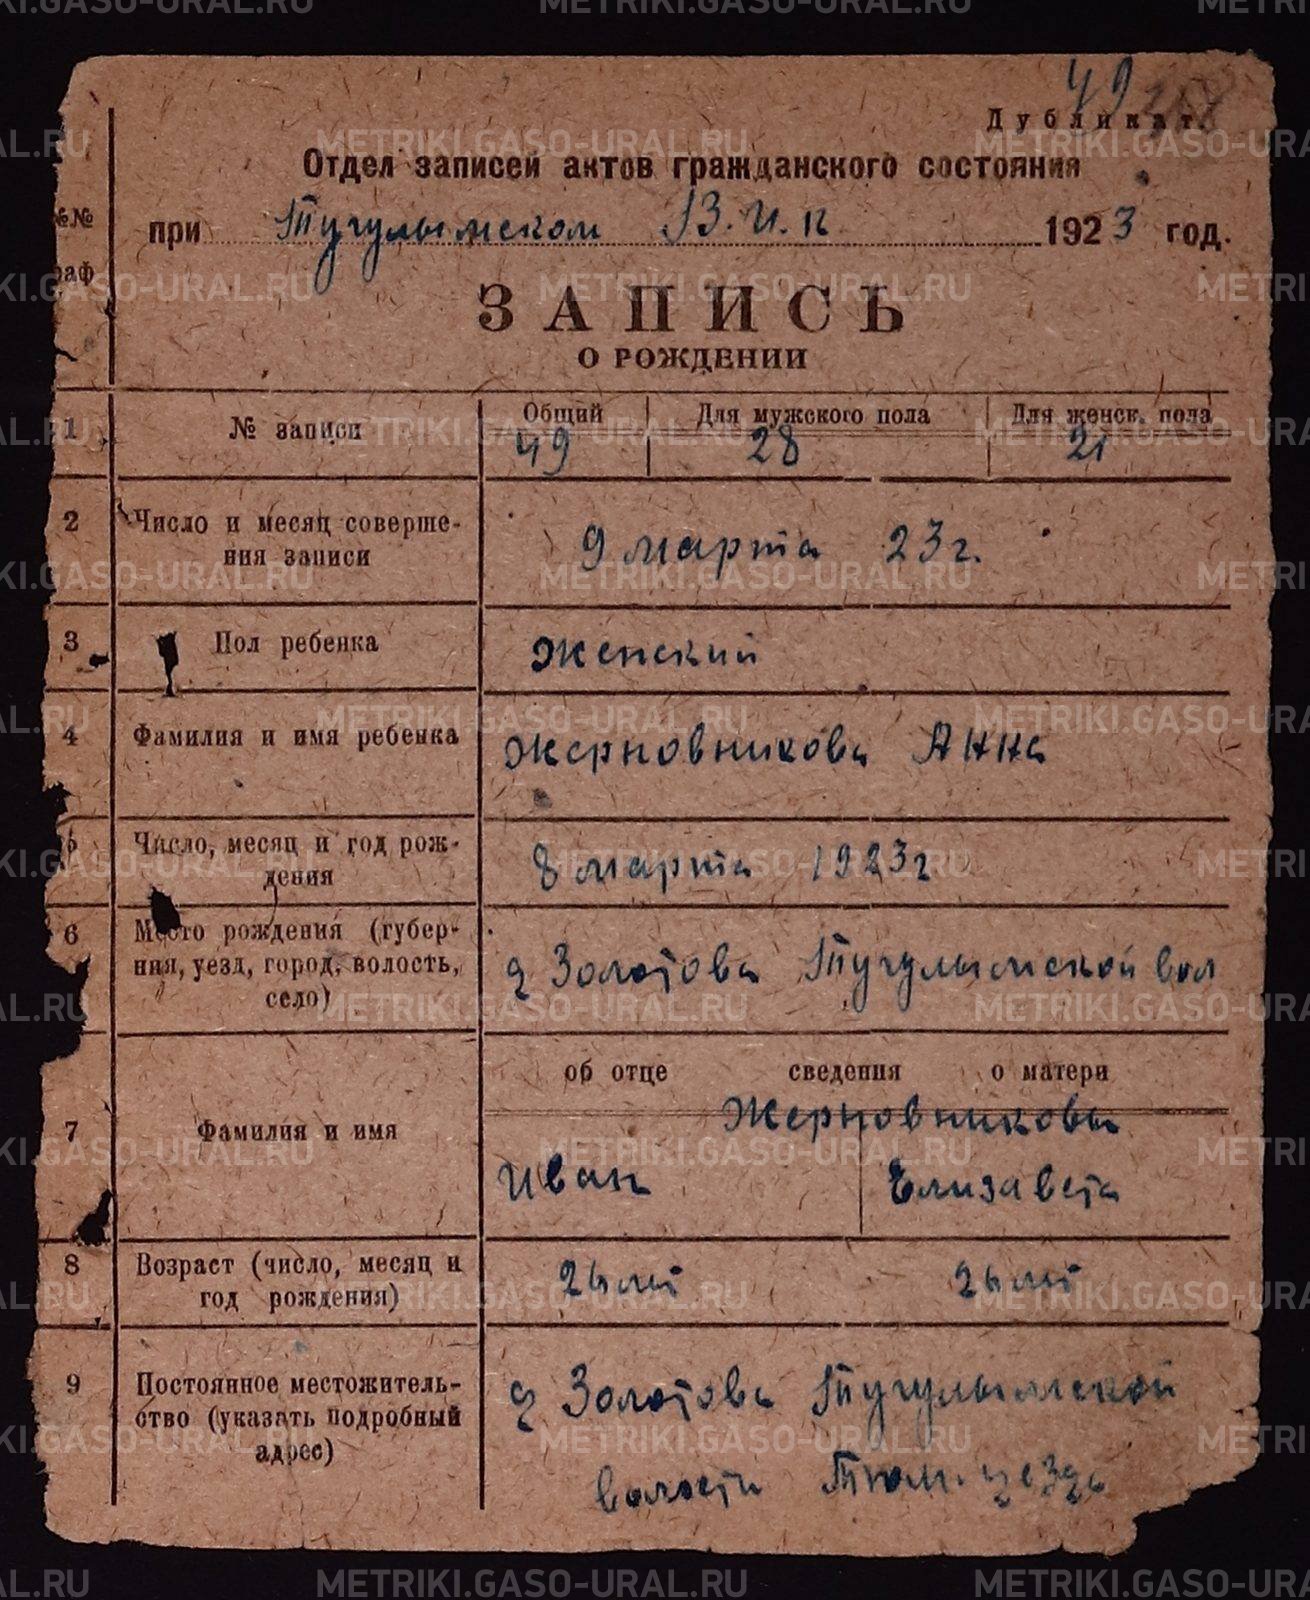 49
Дубликат
Отдел записей актов гражданского состояния
№№
раф
при Тугулымском В.И.К 1923 год.
ЗАПИСЬ
О РОЖДЕНИИ
1 № записи
Общий Для мужского пола Для женск. пола
49 28 21
2 Число и месяц соверше-
ния записи
9 марта 23 г.
3 Пол ребенка Женский
4 Фамилия и имя ребенка Жерновникова Анна
5 Число, месяц и год рож-
дения
8 марта 1923 г
6 Место рождения (губер-
ния, уезд, город, волость,
село)
д Золотова Тугулымской вол
об отце сведения о матери
Жерновниковы
7 Фамилия и имя
Иван Елизавета
8 Возраст (число, месяц и
год рождения)
26 лет 26 лет
9 Постоянное местожитель-
ство (указать подробный
адрес)
д Золотова Тугулымской
волости Тюм. уезда
METRIKI.GASO-URAL.RU